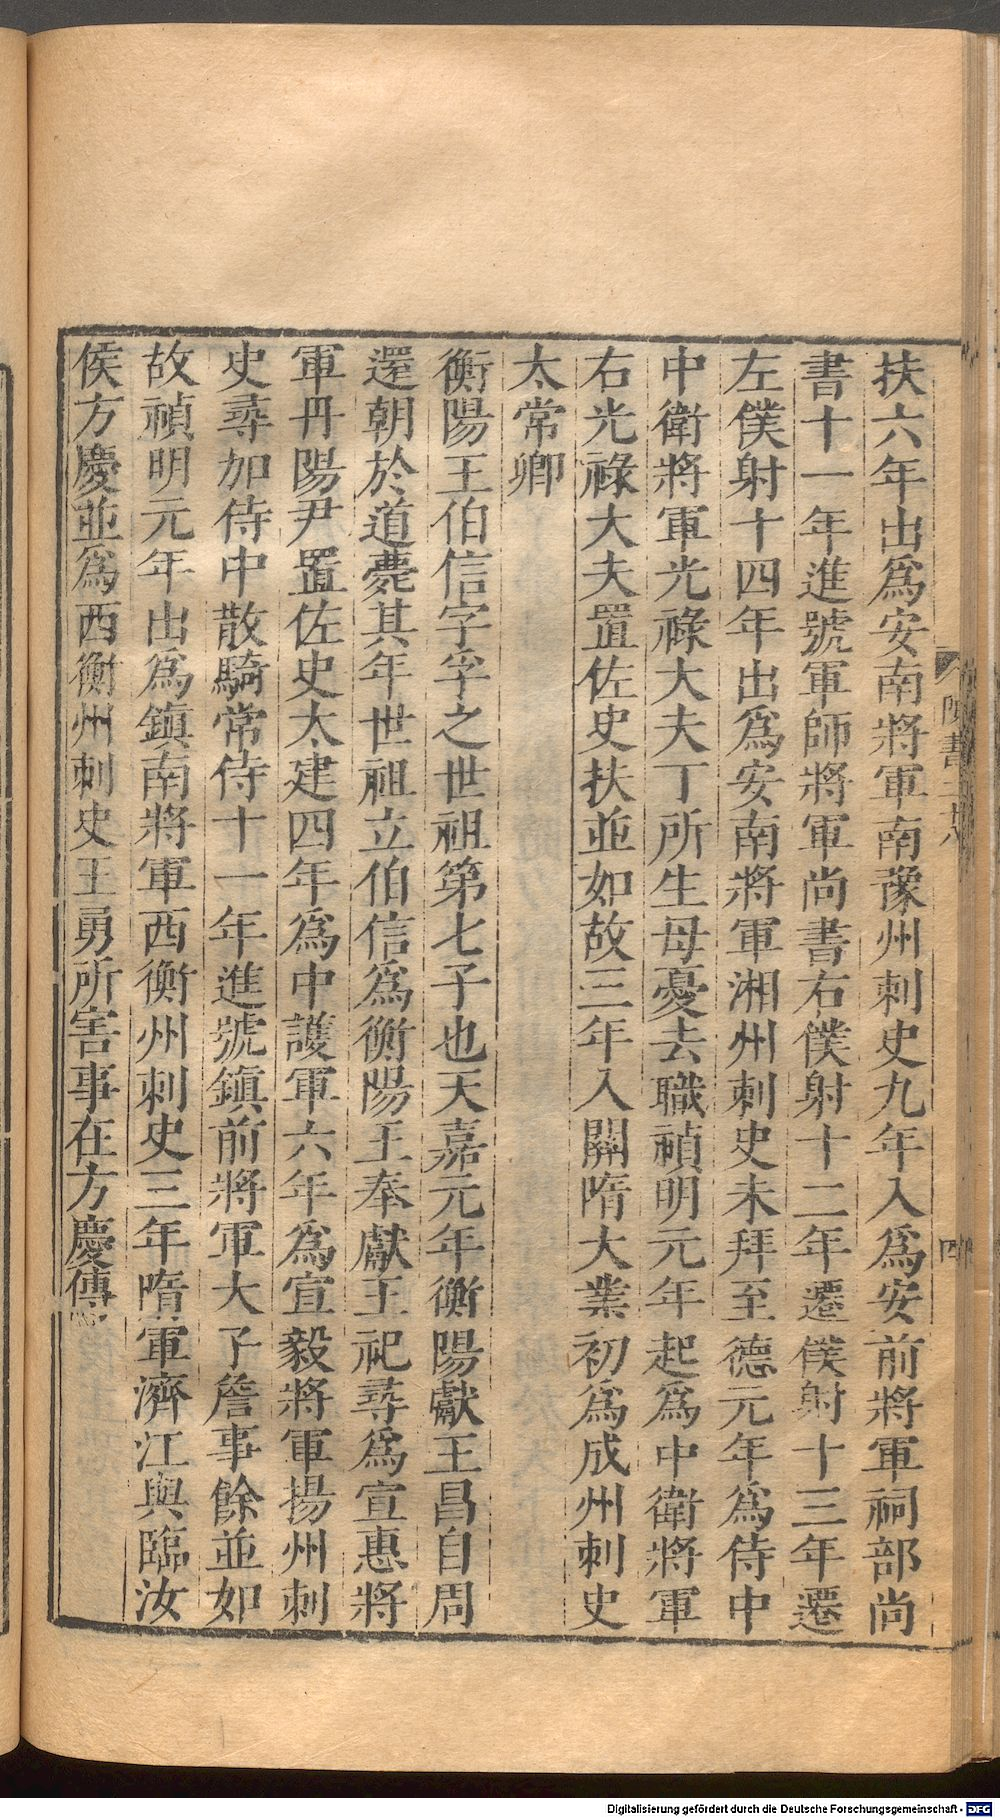 扶六年出爲安南將軍南豫州刺史九年入爲安前將軍祠部尚
書十一年進號軍師將軍尚書右僕射十二年遷僕射十三年遷
左僕射十四年出爲安南將軍湘州刺史未拜至德元年爲侍中
中衛將軍光祿大夫丁所生母憂去職禎明元年起爲中衛將軍
右光祿大夫置佐史扶並如故三年入關隋大業初爲成州刺史
太常卿
衡陽王伯信字孚之世祖第七子也天嘉元年衡陽獻王昌自周
還朝於道薨其年世祖立伯信爲衡陽王奉獻王祀尋爲宣惠將
軍丹陽尹置佐史太建四年爲中護軍六年爲宣毅將軍揚州刺
史尋加侍中散騎常侍十一年進號鎮前將軍太子詹事餘並如
故禎明元年出爲鎮南將軍西衡州刺史三年隋軍濟江與臨汝
侯方慶並爲西衡州刺史王勇所害事在方慶傳
陳書二十八
四
Digitalisierung gefördert durch die Deutsche Forschungsgemeinschaft - DFG